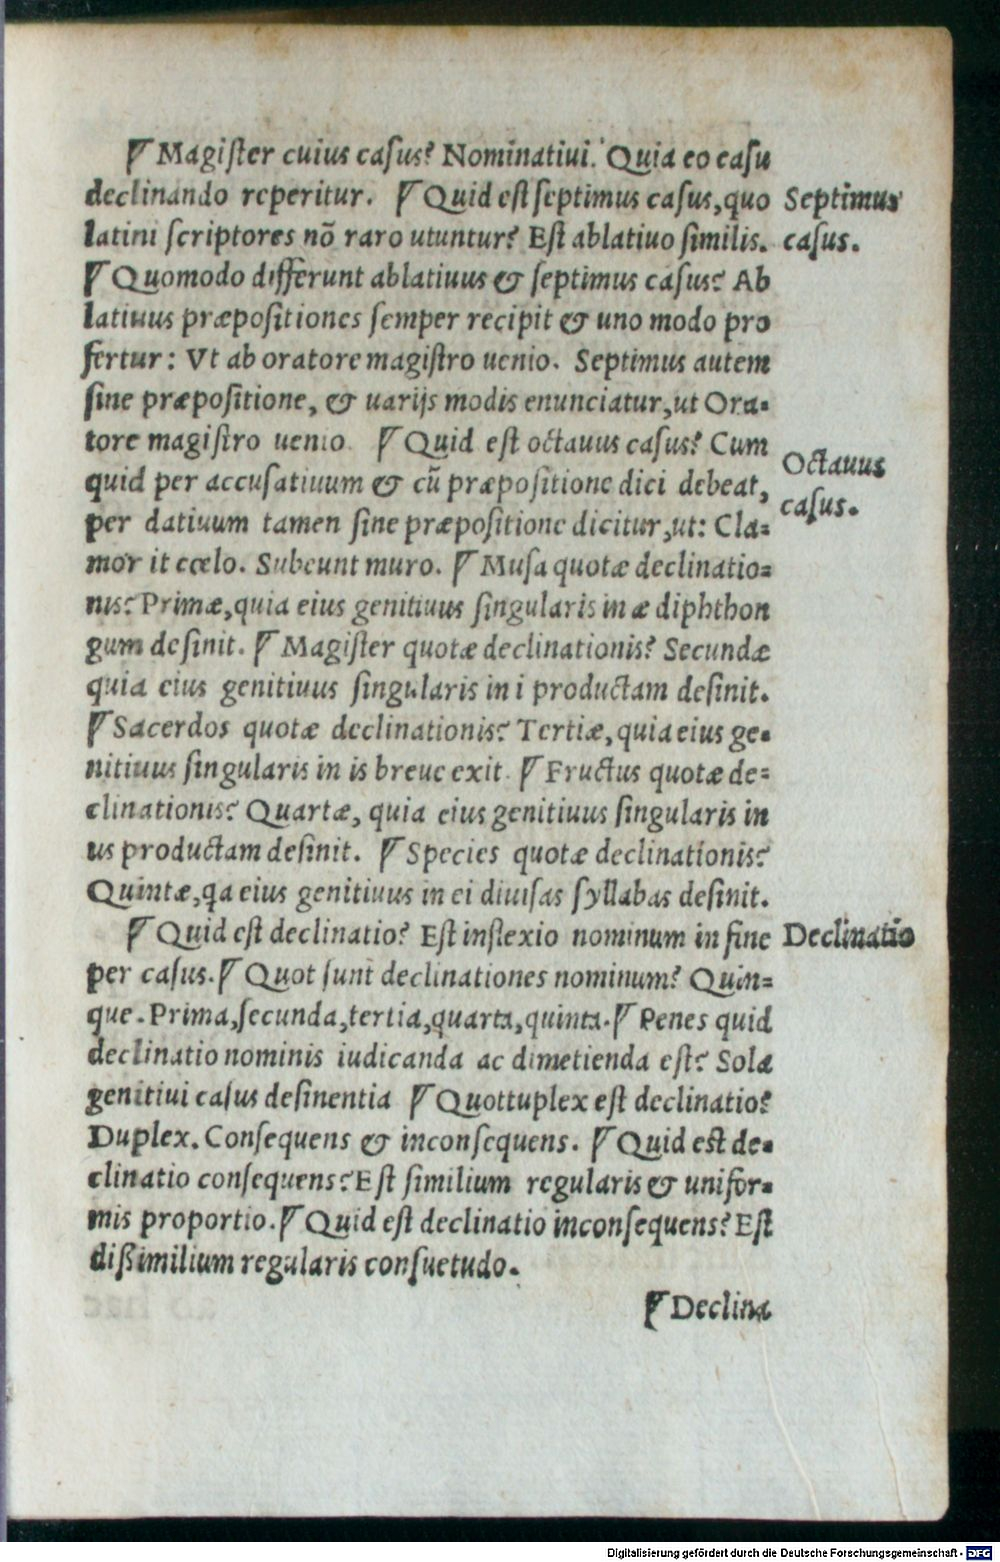 ¶ Magister cuius casus? Nominatiui. Quia eo casu
declinando reperitur. ¶ Quid est septimus casus, quo
latini scriptores nõ raro utuntur? Est ablatiuo similis.
Septimus
casus.
¶ Quomodo differunt ablatiuus & septimus casus? Ab
latiuus præpositiones semper recipit & uno modo pro
fertur: Vt ab oratore magistro uenio. Septimus autem
sine præpositione, & uarijs modis enunciatur, ut Ora-
tore magistro uenio ¶ Quid est octauus casus? Cum
quid per accusatiuum & cũ præpositione dici debeat,
per datiuum tamen sine præpositione dicitur, ut: Cla-
Octauus
casus.
mor it cœlo. Subeunt muro. ¶ Musa quotæ declinatio-
nis? Primæ, quia eius genitiuus singularis in æ diphthon
gum desinit. ¶ Magister quotæ declinationis? Secundæ
quia eius genitiuus singularis in i productam desinit.
¶ Sacerdos quotæ declinationis? Tertiæ, quia eius ge-
nitiuus singularis in is breue exit ¶ Fructus quotæ de-
clinationis? Quartæ, quia eius genitiuus singularis in
us productam desinit. ¶ Species quotæ declinationis?
Quintæ, qa eius genitiuus in ei diuisas syllabas desinit.
¶ Quid est declinatio? Est inflexio nominum in fine
Declinatio
per casus. ¶ Quot sunt declinationes nominum? Quin-
que. Prima, secunda, tertia, quarta, quinta. ¶ Penes quid
declinatio nominis iudicanda ac dimetienda est? Sola
genitiui casus desinentia ¶ Quottuplex est declinatio?
Duplex. Consequens & inconsequens. ¶ Quid est de-
clinatio consequens? Est similium regularis & unifor-
mis proportio. ¶ Quid est declinatio inconsequens? Est
dißimilium regularis consuetudo.
¶ Declina
Digitalisierung gefördert durch die Deutsche Forschungsgemeinschaft - DFG